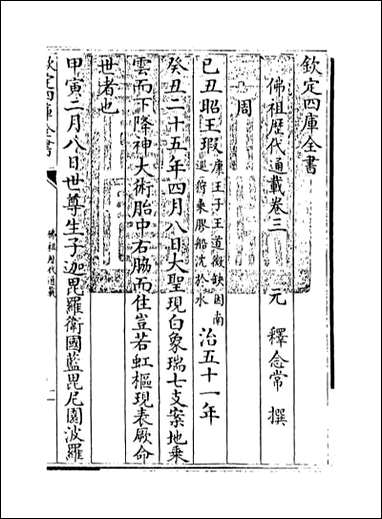 欽定四庫全書
佛祖歷代通載卷三
元 釋念常 撰
周
己丑昭王瑕康王子王道微缺因南
巡狩乗膠船沈於水治五十一年
癸丑二十五年四月八日大聖現白象瑞七支案地乗
雲而下降神大術胎中右脇而住豈若虹樞現表厥命
世者也
甲寅二月八日世尊生于迦毘羅衛國藍毘尼園波羅
欽定四庫全書
佛祖歷代通載